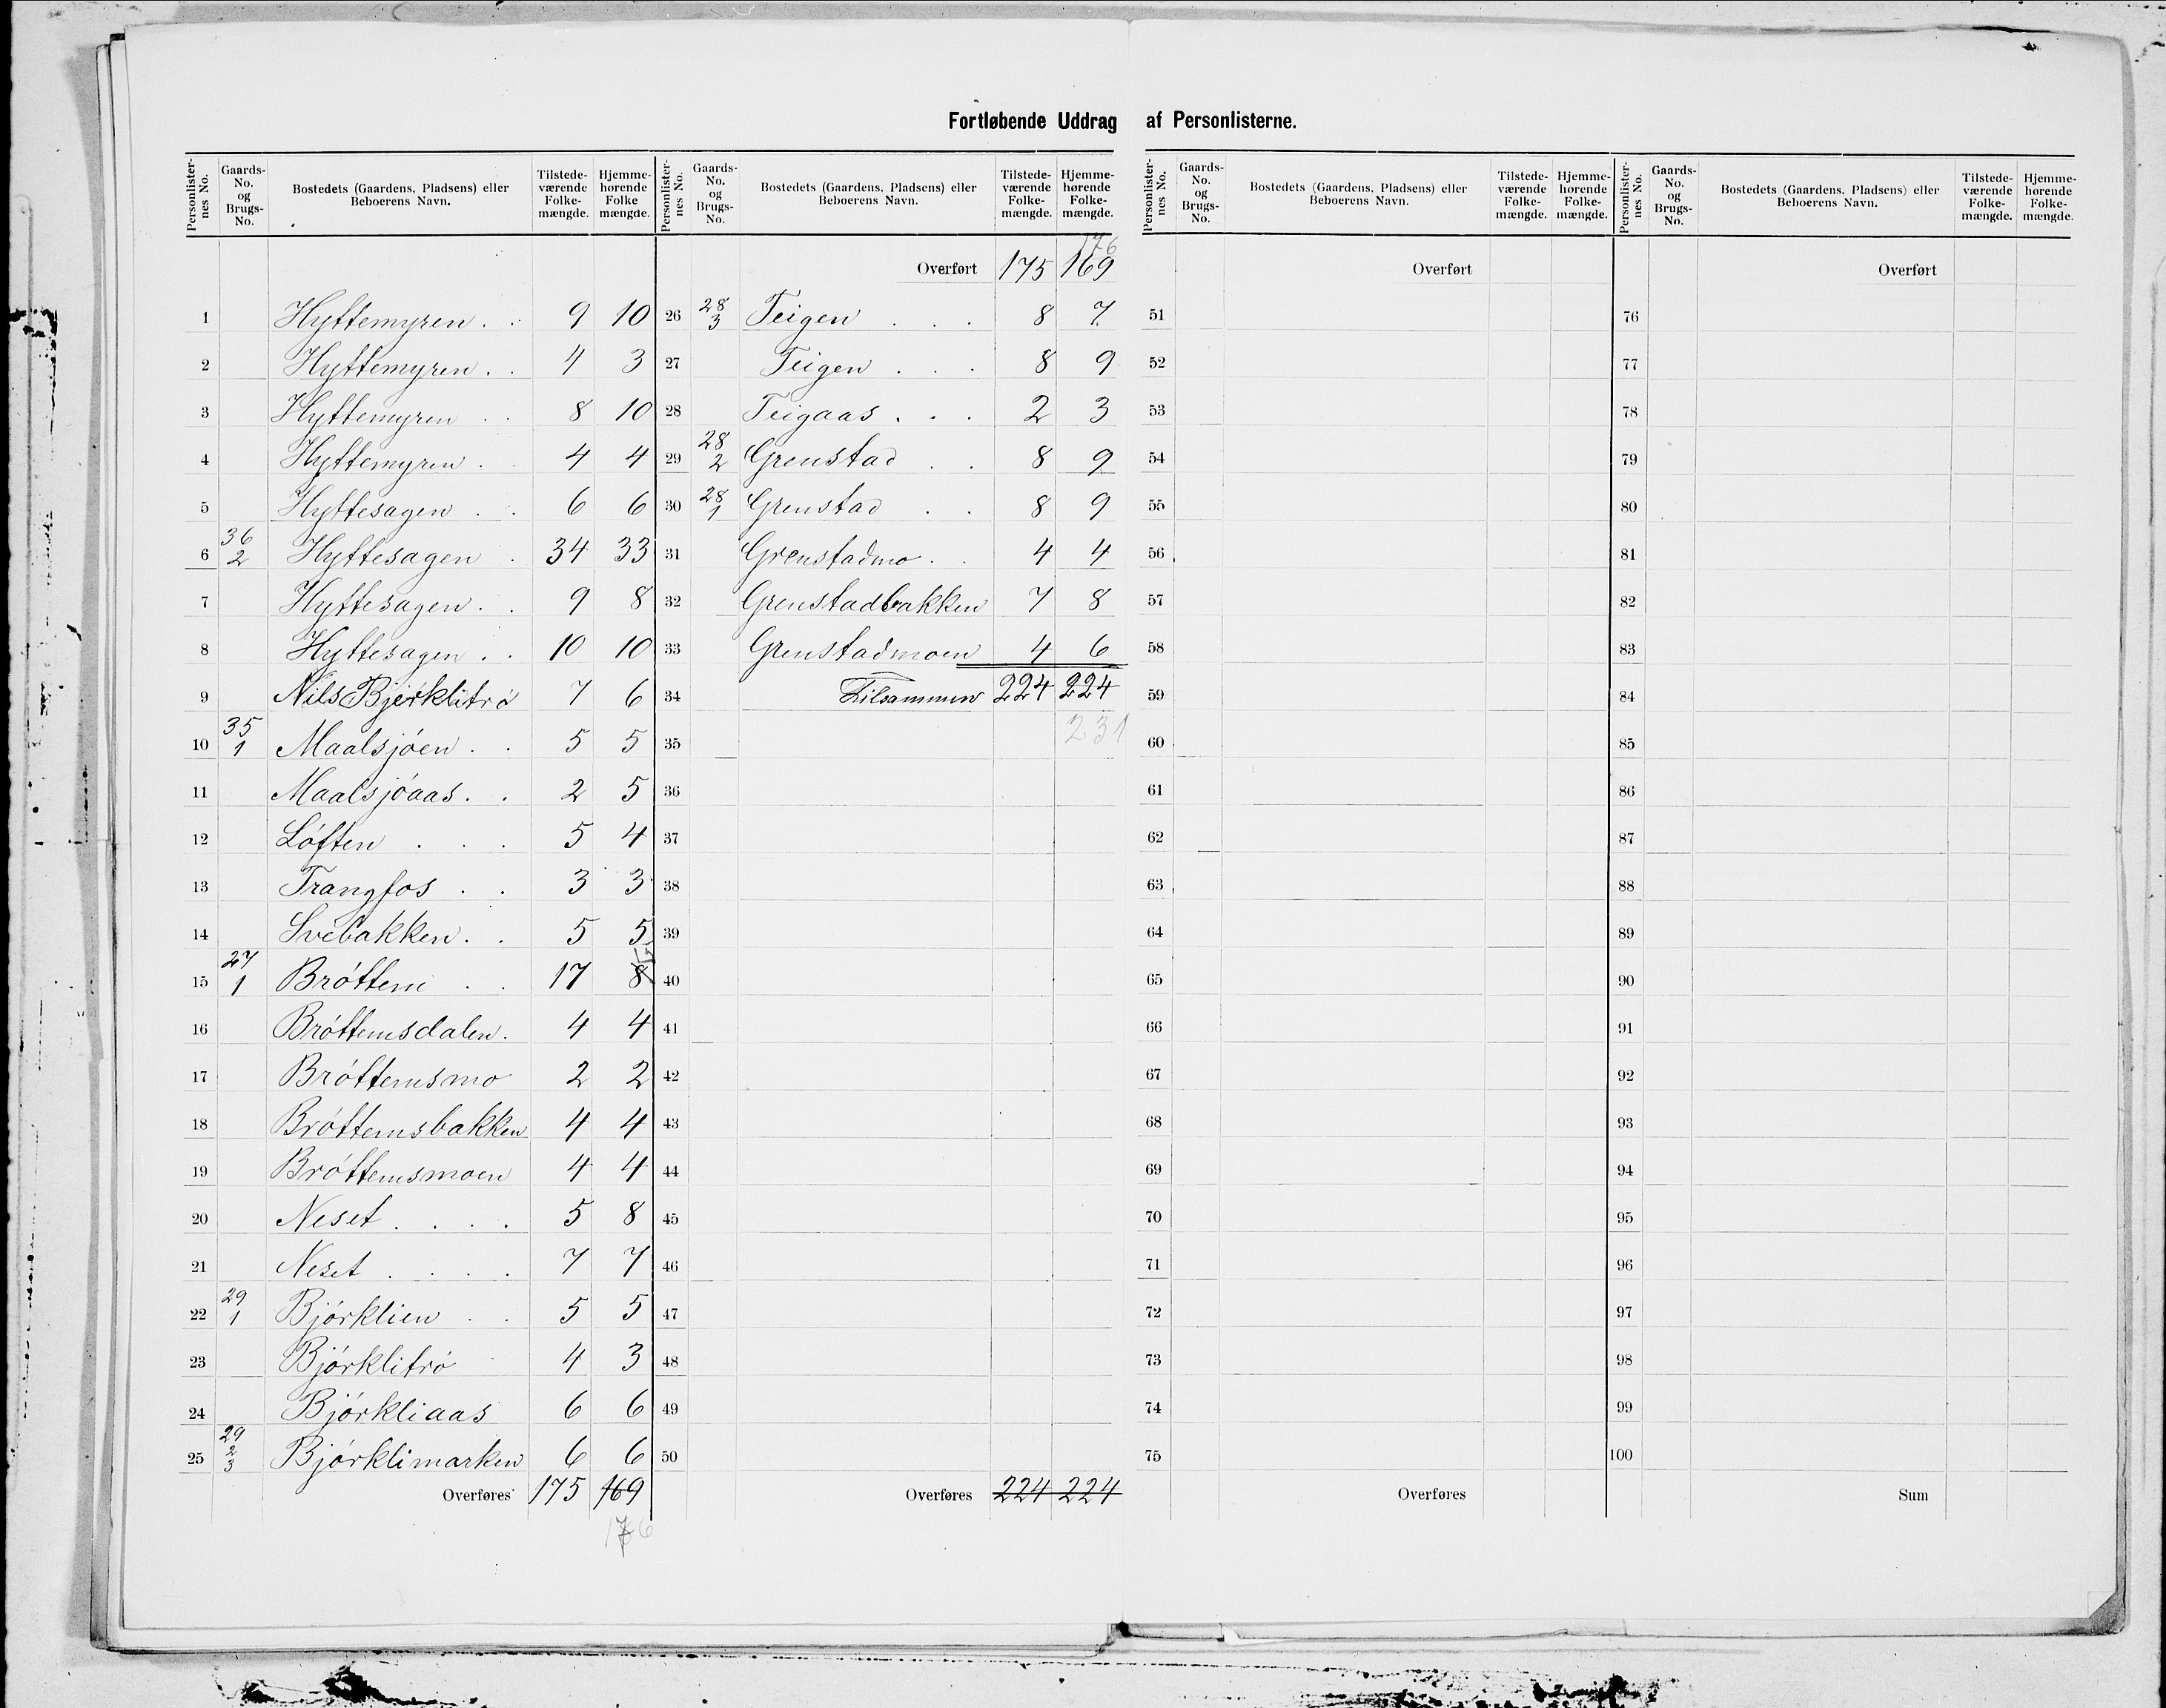 Fortløbende Uddrag af Personlisterne.
Personlister-nes No. Gaards-No. og Brugs-No. Bostedets (Gaardens, Pladsens) eller Beboerens Navn. Tilstede-værende Folke-mængde. Hjemme-hørende Folke mængde.
1 Hyttemyren . . 9 10
2 Hyttemyren . . 4 3
3 Hyttemyren . . 8 10
4 Hyttemyren . . 4 4
5 Hyttesagen . . 6 6
6 36 2 Hyttesagen . 34 33
7 Hyttesagen . . 9 8
8 Hyttesagen . . 10 10
9 Nils Bjerklitrø 7 6
10 35 1 Maalsjóen . . 5 5
11 Maalsjóaas . . 2 5
12 Lóften . . . 5 4
13 Trangfos . . 3 3
14 Svebakken . . 5 5
15 27 1 Bróttem . . 17 8
16 Bróttemsdalen . 4 4
17 Bróttemsmo 2 2
18 Bróttemsbakken 4 4
19 Bróttemsmoen 4 4
20 Neset . . . . 5 8
21 Neset . . . . 7 7
22 29 1 Bjórklien . . 5 5
23 Bjórklitró 4 3
24 Bjórkliaas 6 6
25 29 2 3 Bjórklimarken 6 6
Overføres 175 169
176
Personlister-nes No. Gaards-No. og Brugs-No. Bostedets (Gaardens, Pladsens) eller Beboerens Navn. Tilstede-værende Folke-mængde. Hjemme-hørende Folke-mængde.
176
Overført 175 169
26 28 3 Teigen . . . 8 7
27 Teigen . . . 8 9
28 Teigaas . . . 2 3
29 28 2 Grenstad . . 8 9
30 28 1 Grenstad . . 8 9
31 Grenstadmo . . 4 4
32 Grenstadbakken 7 8
33 Grenstadmoen 4 6
34 Tilsammen 224 224
231
35
36
37
38
39
40
41
42
43
44
45
46
47
48
49
50
Overføres 224 224
Personlister-nes No. Gaards-No. og Brugs-No. Bostedets (Gaardens, Pladsens) eller Beboerens Navn. Tilstede-værende Folke-mængde. Hjemme-hørende Folke-mængde.
Overført
51
52
53
54
55
56
57
58
59
60
61
62
63
64
65
66
67
68
69
70
71
72
73
74
75
Overføres
Personlister-nes No. Gaards-No. og Brugs-No. Bostedets (Gaardens, Pladsens) eller Beboerens Navn. Tilstede-værende Folke-mængde. Hjemme-hørende Folke-mængde.
Overført
76
77
78
79
80
81
82
83
84
85
86
87
88
89
90
91
92
93
94
95
96
97
98
99
100
Sum